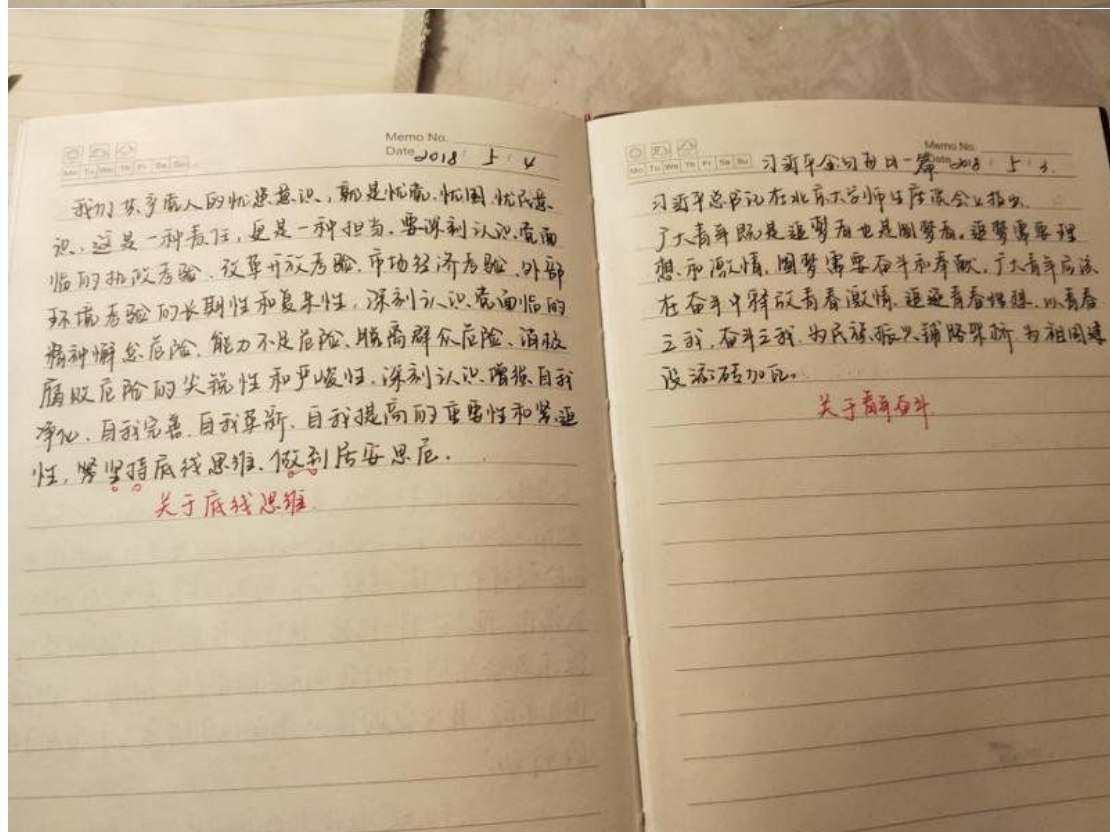 Memo No.
Date 2018 5 4
Mo Tu We Th Fr Sa Su
我们共产党人的忧患意识,就是忧党、忧国、忧民意
识,这是一种责任,更是一种担当。要深刻认识党面
临的执政考验、改革开放考验、市场经济考验、外部
环境考验的长期性和复杂性,深刻认识党面临的
精神懈怠危险、能力不足危险、脱离群众危险、消极
腐败危险的尖锐性和严峻性,深刻认识增强自我
净化、自我完善、自我革新、自我提高的重要性和紧迫
性,坚持底线思维、做到居安思危。
关于底线思维
Memo No.
Mo Tu We Th Fr Sa Su
习近平金句每日一篇 Date 2018 5 3
习近平总书记在北京大学师生座谈会上指出
广大青年既是追梦者也是圆梦者。追梦需要理
想和激情,圆梦需要奋斗和奉献。广大青年应该
在奋斗中释放青春激情、追逐青春理想,以青春
之我,奋斗之我,为民族振兴铺路架桥 为祖国建
设添砖加瓦。
关于青年奋斗